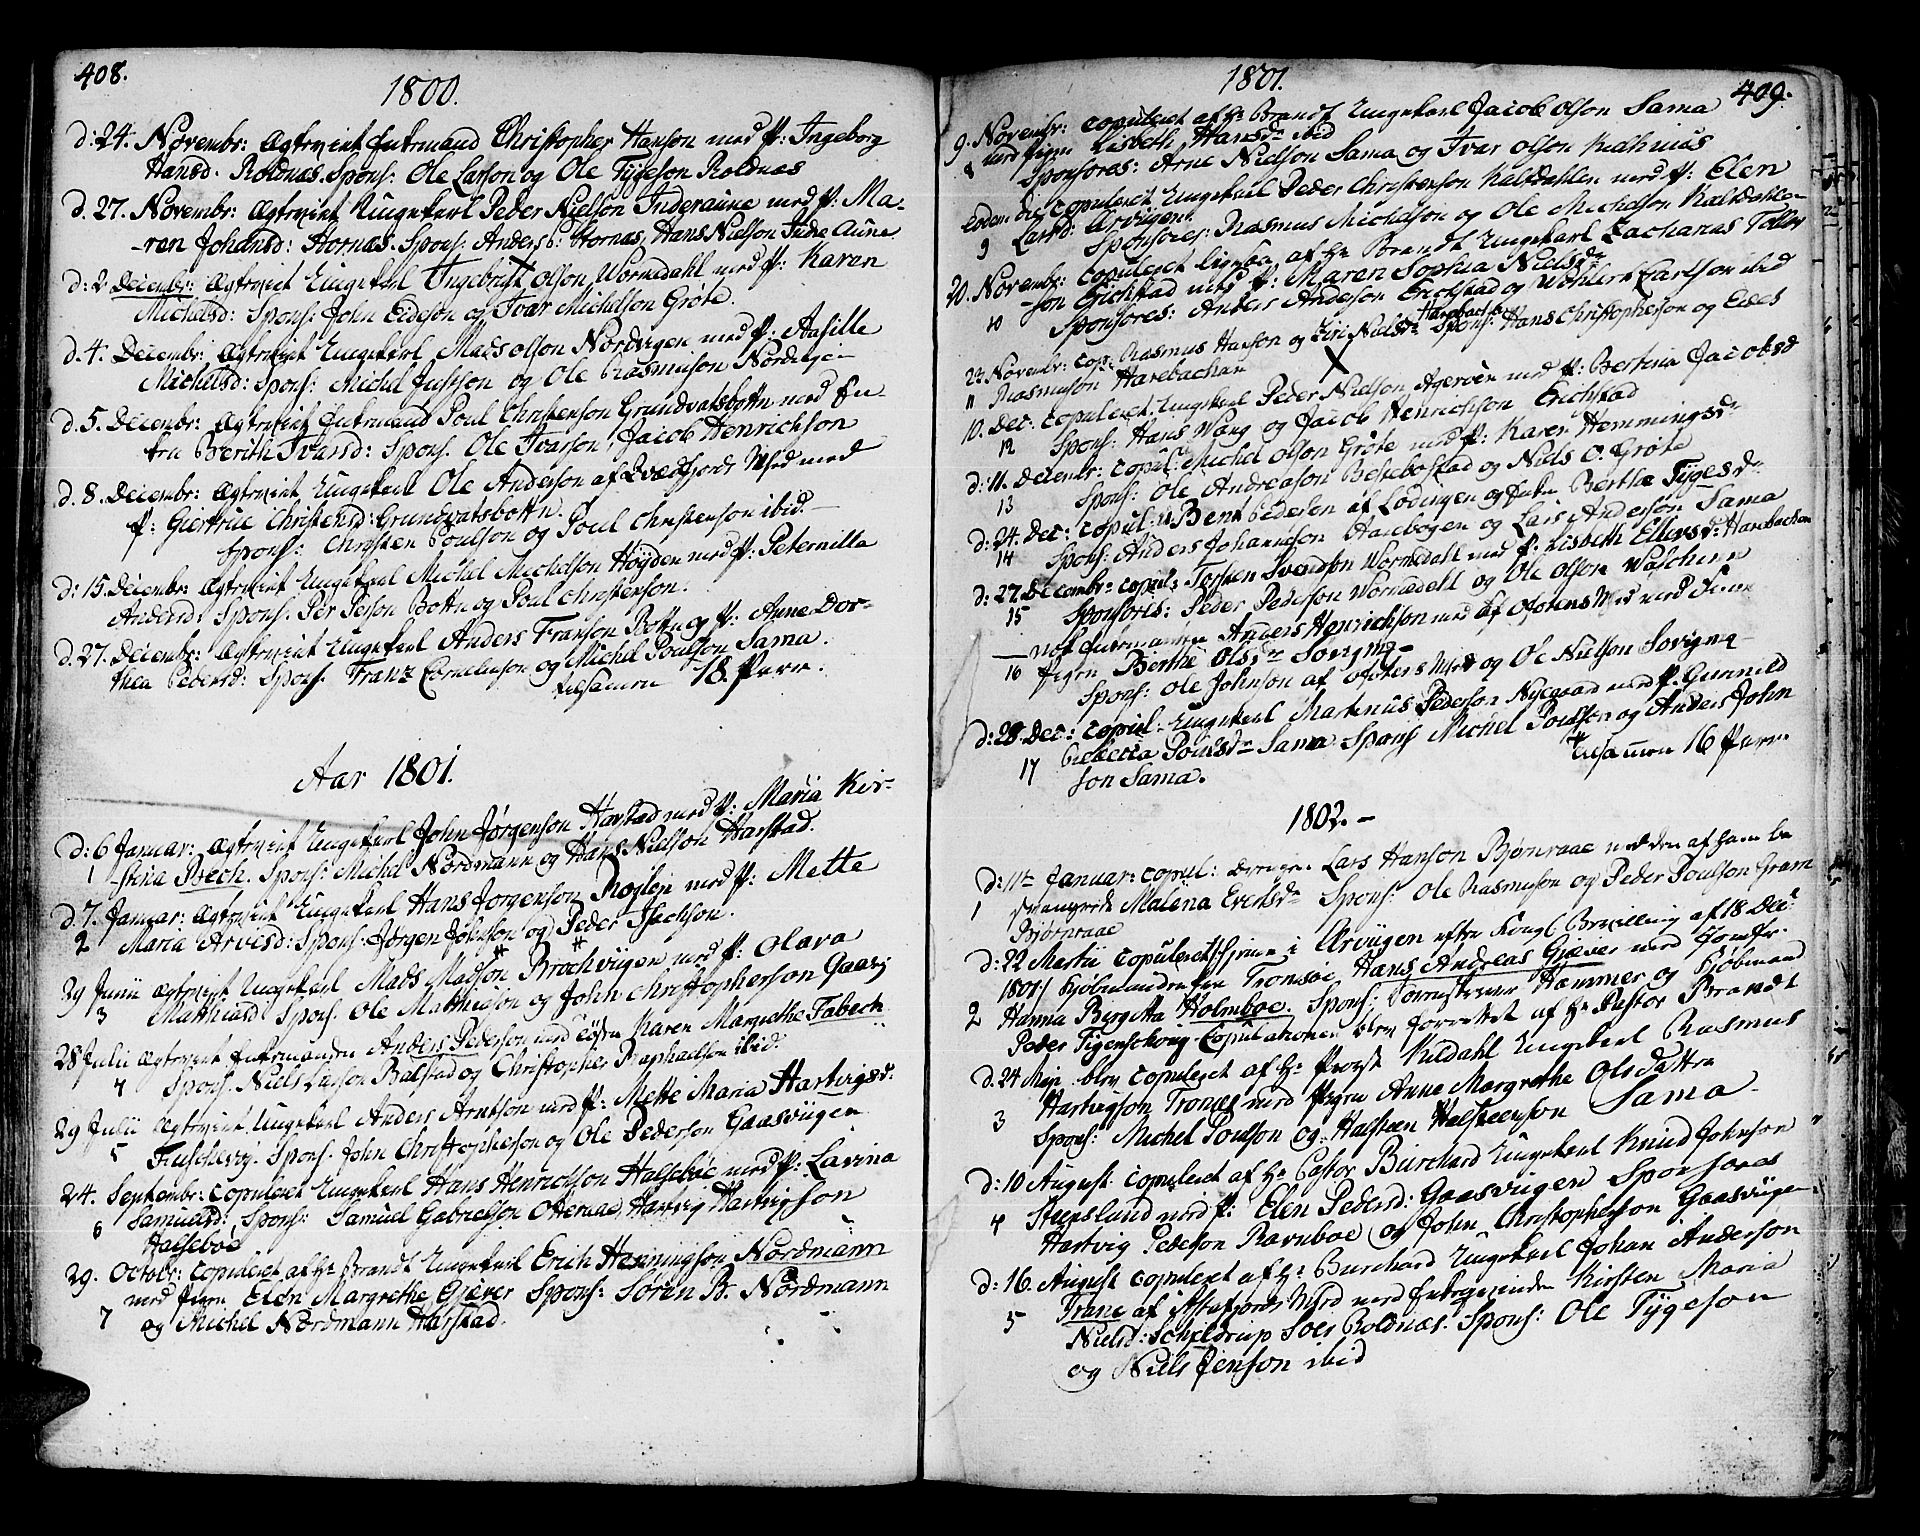 408.
1800.
d: 24. Novembr: Ægteviet Enkemand Christopher Hanson med P: Ingeborg
Hansd. Roldnæs. Spons: Ole Larson og Ole Tygeson Roldnæs
d. 27. Novembr: Ægteviet Ungekarl Peder Nielson Inderaune med P: Ma-
-ren Johansd: Hornæs: Spons: Anders b: Hornæs, Hans Nielson Indre Aune
d: 2 Decembr: Ægteviet Ungekarl Ingebrigt Olson Wormedahl med P: Karen
Michelsd: Spons: John Eideson og Ivar Michelson Grøte.
d. 4. Decembr: Ægteviet Ungekarl Mads Olson Nordvigen med P: Aasille
Michelsd: Spons: Michel Justson og Ole Rasmuson Nordvige-
d. 5. Decembr: Ægteviet Enkemand Poul Christenson Grundvatsbottn med En-
ken Berith Ivarsd: Spons. Ole Ivarson, Jacob Henrichson
d. 8. Decembr: Ægteviet Ungekarl Ole Anderson af Qvædfjords Meed med
P: Giertrue Christensd: Grundvatsbottn.
Spons: Christen Poulson og Poul Christenson ibid. -
d: 15 Decembr: Ægteviet Ungekarl Michel Michelson Høyden med P: Peternilla
Andersd: Spons: Per Person Bottn og Poul Christenson.
d. 27. Decembr: Ægteviet Ungekarl Anders Franson Bottn og P: Anne Dor-
thea Pedersd: Spons. Franz Corneliuson og Michel Poulson Sama.
tilsamen 18. Parr.
Aar 1801.
d: 6 Januar: Ægteviet Ungekarl John Jørgenson Harstad med P: Maria Kir-
1 -stina Bech. Spons: Michel Nordmann og Hans Nielson Harstad.
d. 7. Januar: Ægteviet Ungekarl Hans Jørgenson Røgløj med P: Mette
2 Maria Arvesd: Spons: Jørgen Johnson og Peder Isachson.
29 Junii Ægteviet Ungekarl Mads Madson Brochvigen med P: Olava
3 Mathiasd: Spons. Ole Mathiason og John Christopherson Gaasv:
28 Julii Ægteviet Enkemanden Anders Pederson med Enken Karen Margrethe Fabech
4 Spons: Niels Larson Balstad og Christopher Raphaelson ibid.
29 Julii Ægteviet Ungekarl Anders Arntson med P: Mette Maria Hartvigsd:
5 Fuschevog. Spons. John Christopherson og Ole Pederson Gaasviigen
24. Septembr: copuleret Ungekarl Hans Henrichson Halsebøe med P: Lavina
6 Samuelsd: Spons: Samuel Gabrielson Otteraae, Hartvig Hartvigson
Halsebøe
29. Octobr: copuleret af Hr Brandt Ungekarl Erich Henningson Nordmann
med Pigen Elen Margrethe Giæver Spons: Søren B. Nordmann
7 og Michel Nordmann Harstad.
1801.
409.
9. Novembr: copuleret af Hr Brandt Ungekarl Jacob Olson Sama
8 med Pigen Lisbeth Hansdr ibid
Sponsores: Arne Nielson Sama og Ivar Olson Kielhuus
Eodem die copuleret Ungekarl Peder Christenson Kaltdahlen med P: Elen
9 Larsd: Ærvigen.
Sponsores: Rasmus Michelson og Ole Michelson Kaltdahle-
20. Novembr: copuleret ligeledes af Hr Brandt Ungekarl Zacharias Tolle
-son Erichstad med P: Maren Sophia Nielsdr
10 Sponsores: Anders Anderson Erichstad og Wohlert Carlson ibid
Harebach
22 Novembr: cop: Rasmus Hanson og Siri Nielsdr Spons: Hans Christopherson og Eies
11 Rasmuson Harebachen
10. Dec: copuleret Ungekarl Peder Nielson Agerøen med P: Bertina Jacobsd
12 Spons: Hans Wang og Jacob Henrichson Erichstad
d: 11. Decembr: copul: Michel Olson Grøte med P: Karen Hemmingsdr
13 Spons: Ole Andreason Bessebostad og Niels O. Grøte
d: 24. Dec: copul: Bent Pederson af Lødingen og Enke Berthe Tygesdr
14 Spons: Anders Johanneson Harebogen og Lars Anderson Sama
d: 27 Decembr: copul: Torsten Svendson Wormedahl med P: Lisbeth Ellersd: Harebachen
15 Sponsores: Peder Pederson Wormedahl og Ole Olson Waschinn
Enkemanden Anders Henrichson af Ofotens Meed med
16 Pigen Berthe Olsdr Sørvigmg-
Spons: Ole Johnson af Ofotens Meed og Ole Nielson Sørvigmg
d: 28 Dec: copul. Ungekarl Martinus Pederson Nyegaard med P. Gunnild
17 Rebecca Poulsdr Sama Spons Michel Poulson og Anders John
son Sama.
Tilsamen 16 Parr.
1802. -
d: 11te Januar: copul: Lars Hanson Bjørnraae med den af ham be
1 svangrede Malena Erichsdr Spons: Ole Rasmuson og Peder Poulson Gram
Bjørnraae
d: 22 Martii copuleret hjemme i Ærviigen efter Kongl Bevilling af 18 Dec:
1801 Kjøbmanden fra Tromsøe, Hans Andreas Giæver med Jomfr.
2 Hanna Birgitta Holmboe. Spons: Hammer og Kjøbmand
Peder Figenschoug Copulationen blev forrettet af Hr Pastor Brandt
d. 24 Maji blev copuleret af Hr Provst Kildahl Ungekarl Rasmus
Hartvigson Tronæs med Pigen Anne Margrethe Olsdattr
3 Spons: Michel Poulson og Halsteen Halsteenson Sama
d: 10 August: copuleret af Hr Pastor Burchard Ungekarl Knud Johnson
4 Steensland med P: Elen Pedersd: Gaasviigen Sponsores
Hartvig Pederson Ravnboe og John Christopherson Gaasviigen
d: 16. August copuleret af Hr Burchard Ungekarl Johan Anderson
5 Trane af Astafjords Meed med Enkegvinden Kirsten Maria
Nielsd: Scheldrup Soer Roldnæs. Spons: Ole Tygeson
og Niels Jenson ibid